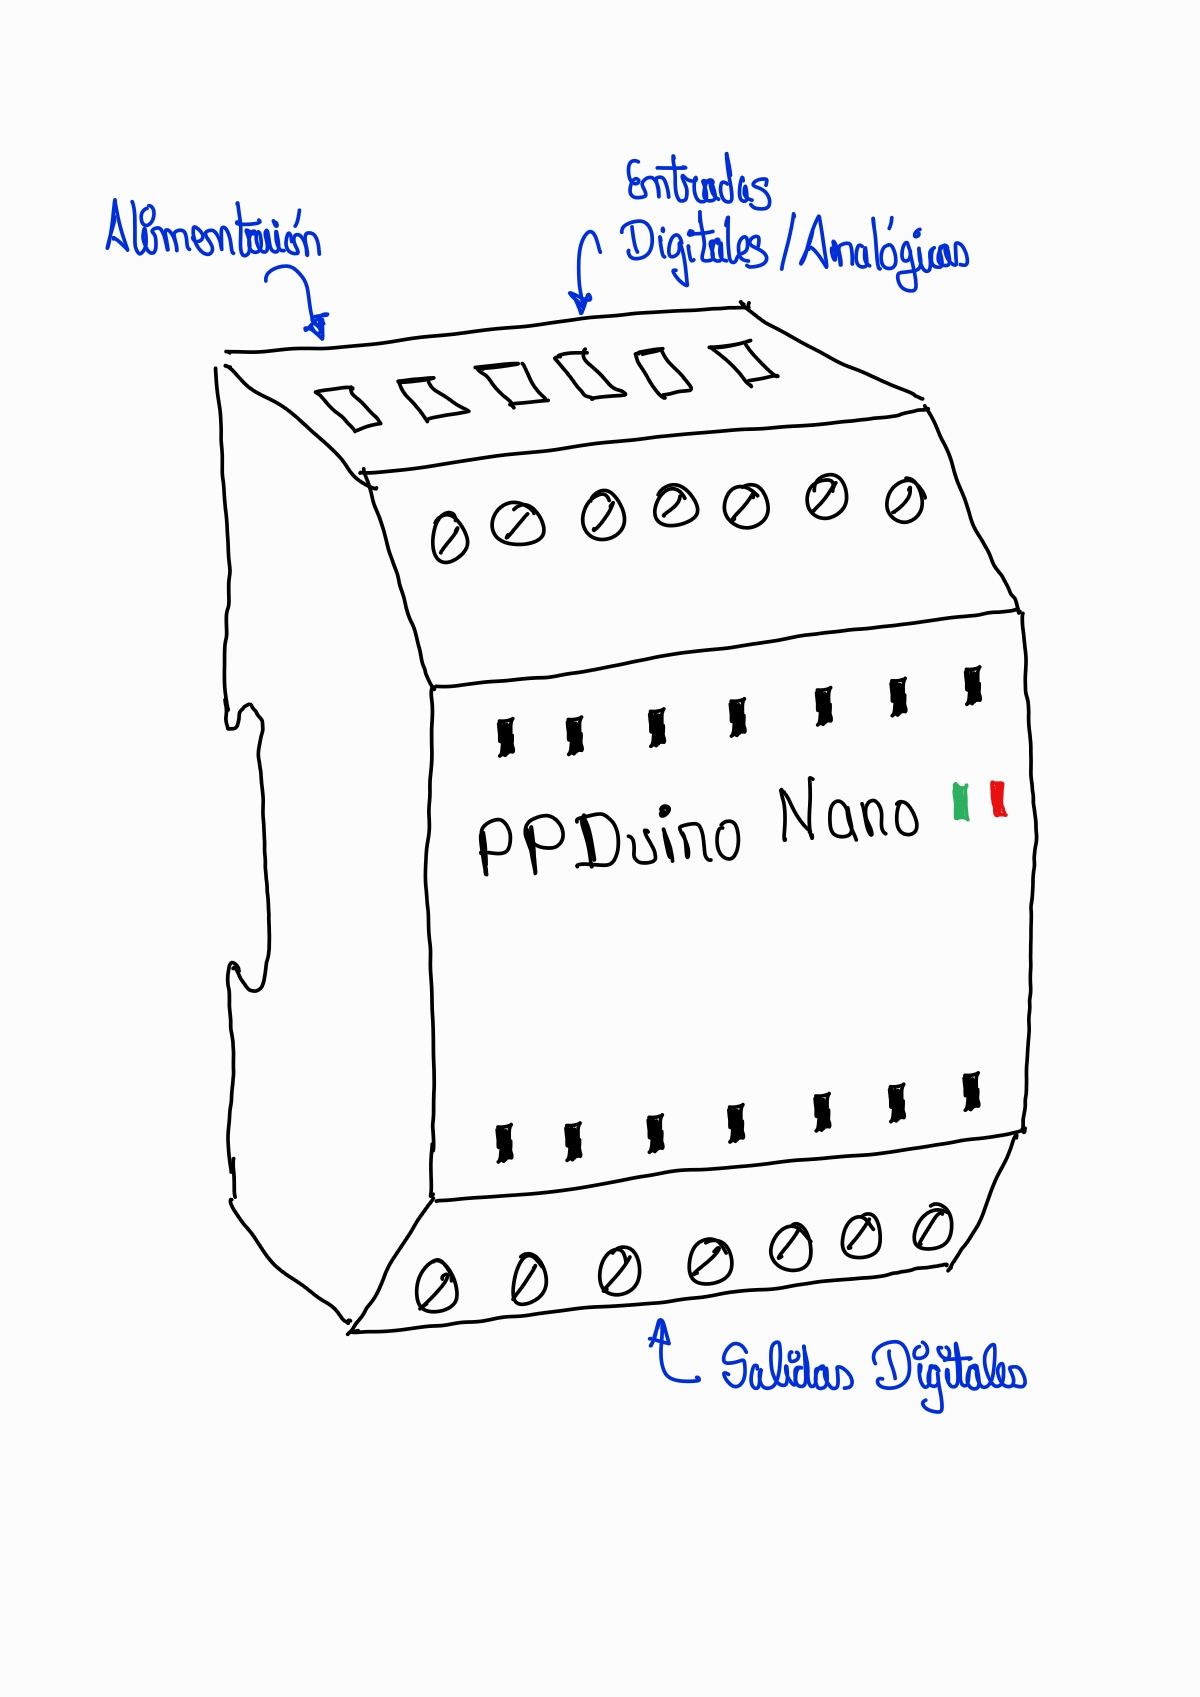 Alimentación
Entradas
Digitales / Analógicas
PPDuino Nano
Salidas Digitales